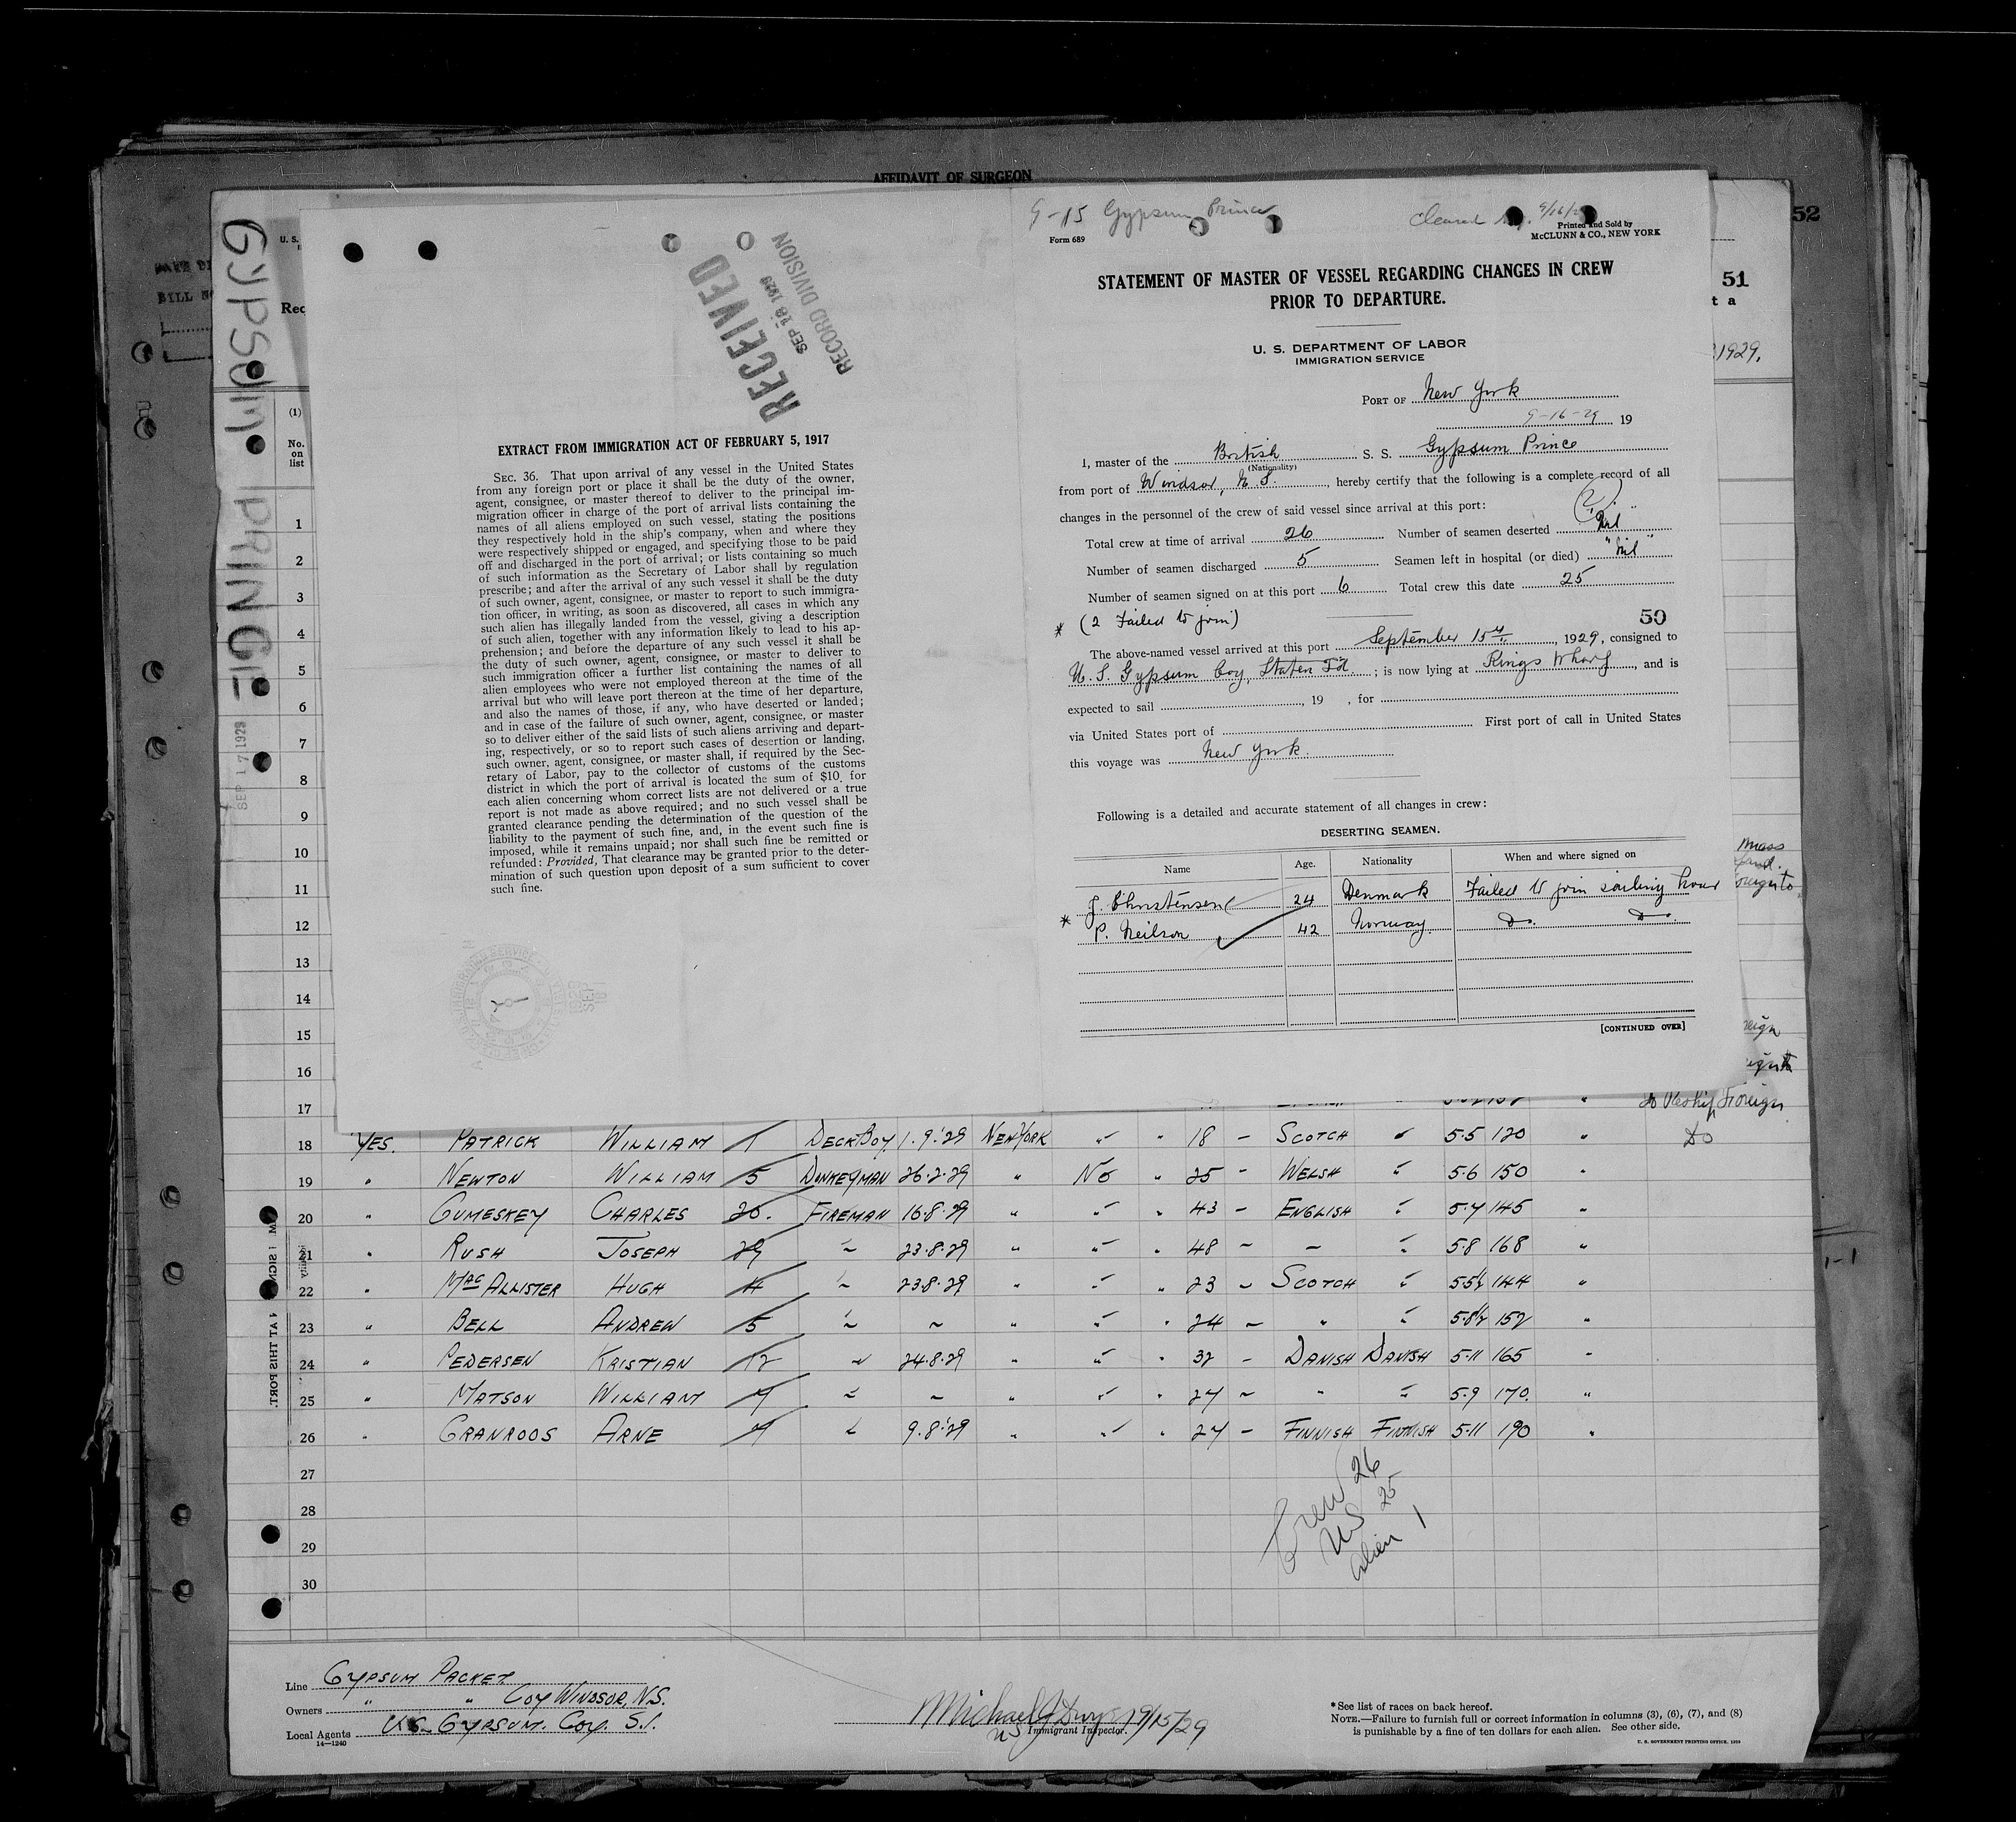 AFFIDAVIT OF SURGEON
52
51
t a
1929.
GYPSUM PRINCE
SEP 17 1929
U. S.
Rec
RECEIVED
SEP 18 1929
RECORD DIVISION
EXTRACT FROM IMMIGRATION ACT OF FEBRUARY 5, 1917
SEC. 36. That upon arrival of any vessel in the United States
from any foreign port or place it shall be the duty of the owner,
agent, consignee, or master thereof to deliver to the principal im-
migration officer in charge of the port of arrival lists containing the
names of all aliens employed on such vessel, stating the positions
they respectively hold in the ship's company, when and where they
were respectively shipped or engaged, and specifying those to be paid
off and discharged in the port of arrival; or lists containing so much
of such information as the Secretary of Labor shall by regulation
prescribe; and after the arrival of any such vessel it shall be the duty
of such owner, agent, consignee, or master to report to such immigra-
tion officer, in writing, as soon as discovered, all cases in which any
such alien has illegally landed from the vessel, giving a description
of such alien, together with any information likely to lead to his ap-
prehension; and before the departure of any such vessel it shall be
the duty of such owner, agent, consignee, or master to deliver to
such immigration officer a further list containing the names of all
alien employees who were not employed thereon at the time of the
arrival but who will leave port thereon at the time of her departure,
and also the names of those, if any, who have deserted or landed;
and in case of the failure of such owner, agent, consignee, or master
so to deliver either of the said lists of such aliens arriving and depart-
ing, respectively, or so to report such cases of desertion or landing,
such owner, agent, consignee, or master shall, if required by the Sec-
retary of Labor, pay to the collector of customs of the customs
district in which the port of arrival is located the sum of $10 for
each alien concerning whom correct lists are not delivered or a true
report is not made as above required; and no such vessel shall be
granted clearance pending the determination of the question of the
liability to the payment of such fine, and, in the event such fine is
imposed, while it remains unpaid; nor shall such fine be remitted or
refunded: Provided, That clearance may be granted prior to the deter-
mination of such question upon deposit of a sum sufficient to cover
such fine.
9-15 Gypsum Prince
Form 689
Printed and Sold by
McCLUNN & CO., NEW YORK
STATEMENT OF MASTER OF VESSEL REGARDING CHANGES IN CREW
PRIOR TO DEPARTURE.
U. S. DEPARTMENT OF LABOR
IMMIGRATION SERVICE
PORT OF New York
9-16-29 19
I, master of the British S. S. Gypsum Prince
(Nationality)
from port of Windsor, N.S., hereby certify that the following is a complete record of all
changes in the personnel of the crew of said vessel since arrival at this port:
Total crew at time of arrival 26 Number of seamen deserted Nil
Number of seamen discharged 5 Seamen left in hospital (or died) "Nil"
Number of seamen signed on at this port 6 Total crew this date 25
* (2 Failed to join)
50
The above-named vessel arrived at this port September 15th, 1929, consigned to
U.S. Gypsum Coy, Staten Isl.; is now lying at Kings Wharf, and is
expected to sail , 19 , for
via United States port of First port of call in United States
this voyage was New York.
Following is a detailed and accurate statement of all changes in crew:
DESERTING SEAMEN.
Name Age. Nationality When and where signed on
J. Christensen 24 Denmark Failed to join sailing hour
* P. Neilson 42 Norway Do. Do.
[CONTINUED OVER]
(1)
No.
on
list
1
2
3
4
5
6
7
8
9
10
11
12
13
14
15
16
17 to Reship Foreign
18 YES. PATRICK WILLIAM 1 DECK BOY 1.9.'29 NEW YORK " " 18 - SCOTCH " 5.5 120 " Do
19 " NEWTON WILLIAM 5 DONKEYMAN 26.2.29 " No " 25 - WELSH " 5.6 150 "
20 " GUMESKEY CHARLES 20. FIREMAN 16.8.29 " " " 43 - ENGLISH " 5.7 145 "
21 " RUSH JOSEPH 29 " 23.8.29 " " " 48 - - " 5.8 168 "
22 " MacALLISTER HUGH 4 " 23.8.29 " " " 23 - SCOTCH " 5.5½ 144 "
23 " BELL ANDREW 5 " ~ " " " 24 - " " 5.8½ 152 "
24 " PEDERSEN KRISTIAN 12 " 24.8.29 " " " 32 - DANISH DANISH 5.11 165 "
25 " MATSON WILLIAM 7 " ~ " " " 27 - " " 5.9 170. "
26 " GRANROOS ARNE 7 " 9.8.'29 " " " 27 - FINNISH FINNISH 5.11 190 "
27
28
29
30
Crew 26
US 25
alien 1
Line GYPSUM PACKET
Owners " " COY WINDSOR, N.S.
Local Agents U.S. GYPSUM. COY. S.I.
14—1240
Michael J Dwyer 9/15/29
US Immigrant Inspector.
*See list of races on back hereof.
NOTE.—Failure to furnish full or correct information in columns (3), (6), (7), and (8)
is punishable by a fine of ten dollars for each alien. See other side.
U. S. GOVERNMENT PRINTING OFFICE. 1926